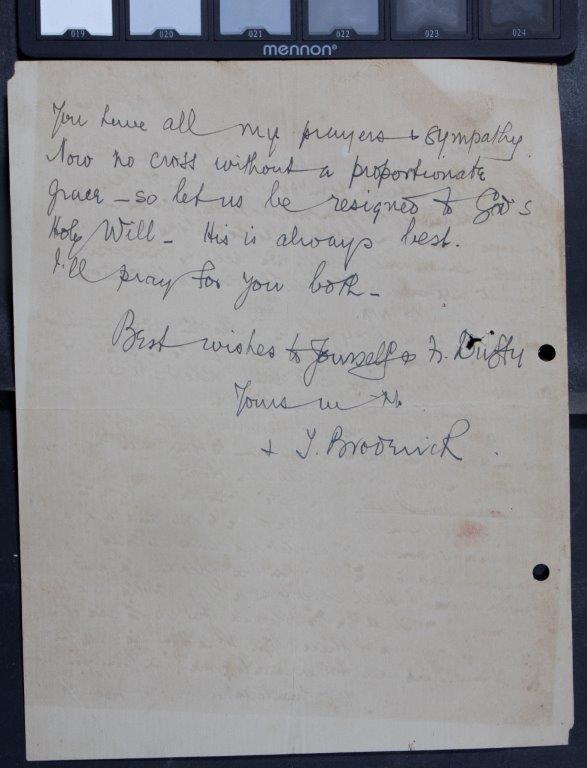 019 020 021 022 023 024
mennon®
You have all my prayers & sympathy.
Now no cross without a proportionate
grace - so let us be resigned to God's
Holy Will - His is always best.
I'll pray for you both -
Best wishes to Yourself & Fr. Duffy
Yours in
+ T. Broderick.